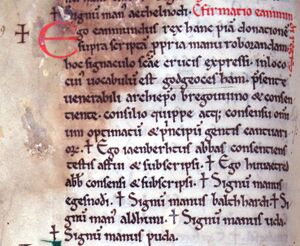 Signū man aethelnoch. Cfirmatio eanmun
Ego eanmundus rex hanc piā donationē
supra scriptā ppria manu roborando
hoc signaculo scae crucis expressi. in loco
cui vocabulū est godgeoces ham. psente
venerabili archiepo bregouuino & consen
tiente. consilio quippe atq; consensu omni
um optimatū & pncipū gentis cantuari
orū. ✝ Ego iaenberhtus abbas consentiens
testis assisto & subscripsi. ✝ Ego huiaetred
abb consensi & subscripsi. ✝ Signū manus
egesnodi. ✝ Signū manus balchhardi. ✝ Si
gnū man aldhuni. ✝ Signū manus uda.
✝ Signū manus puda.